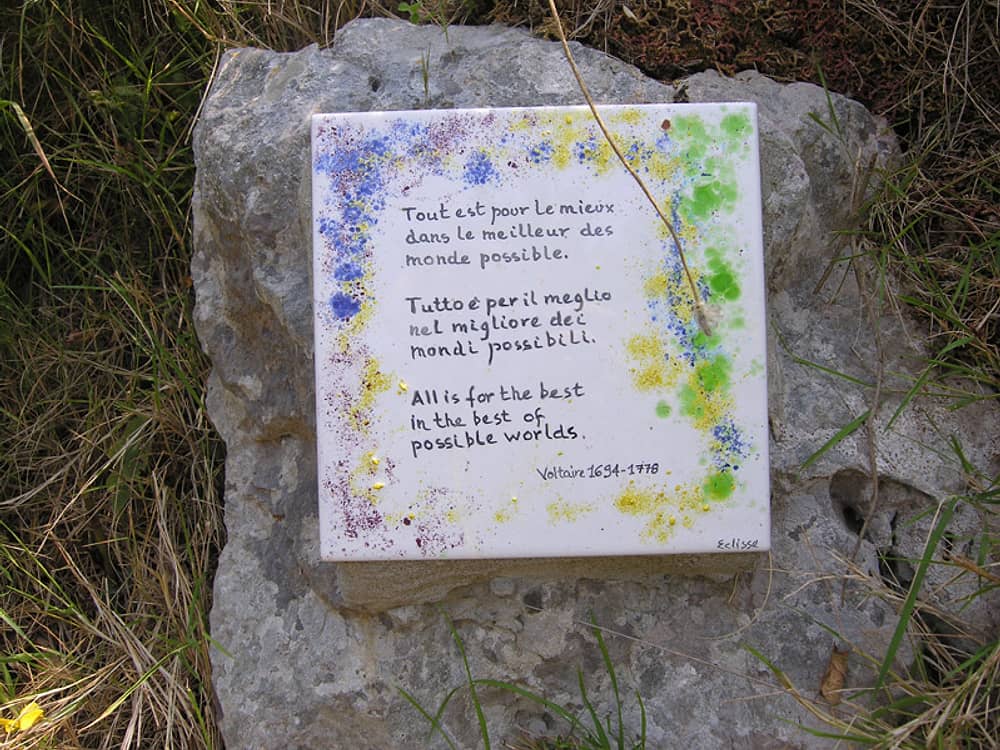 Tout est pour le mieux
dans le meilleur des
monde possible.
Tutto è per il meglio
nel migliore dei
mondi possibili.
All is for the best
in the best of
possible worlds.
Voltaire 1694-1778
Eclisse